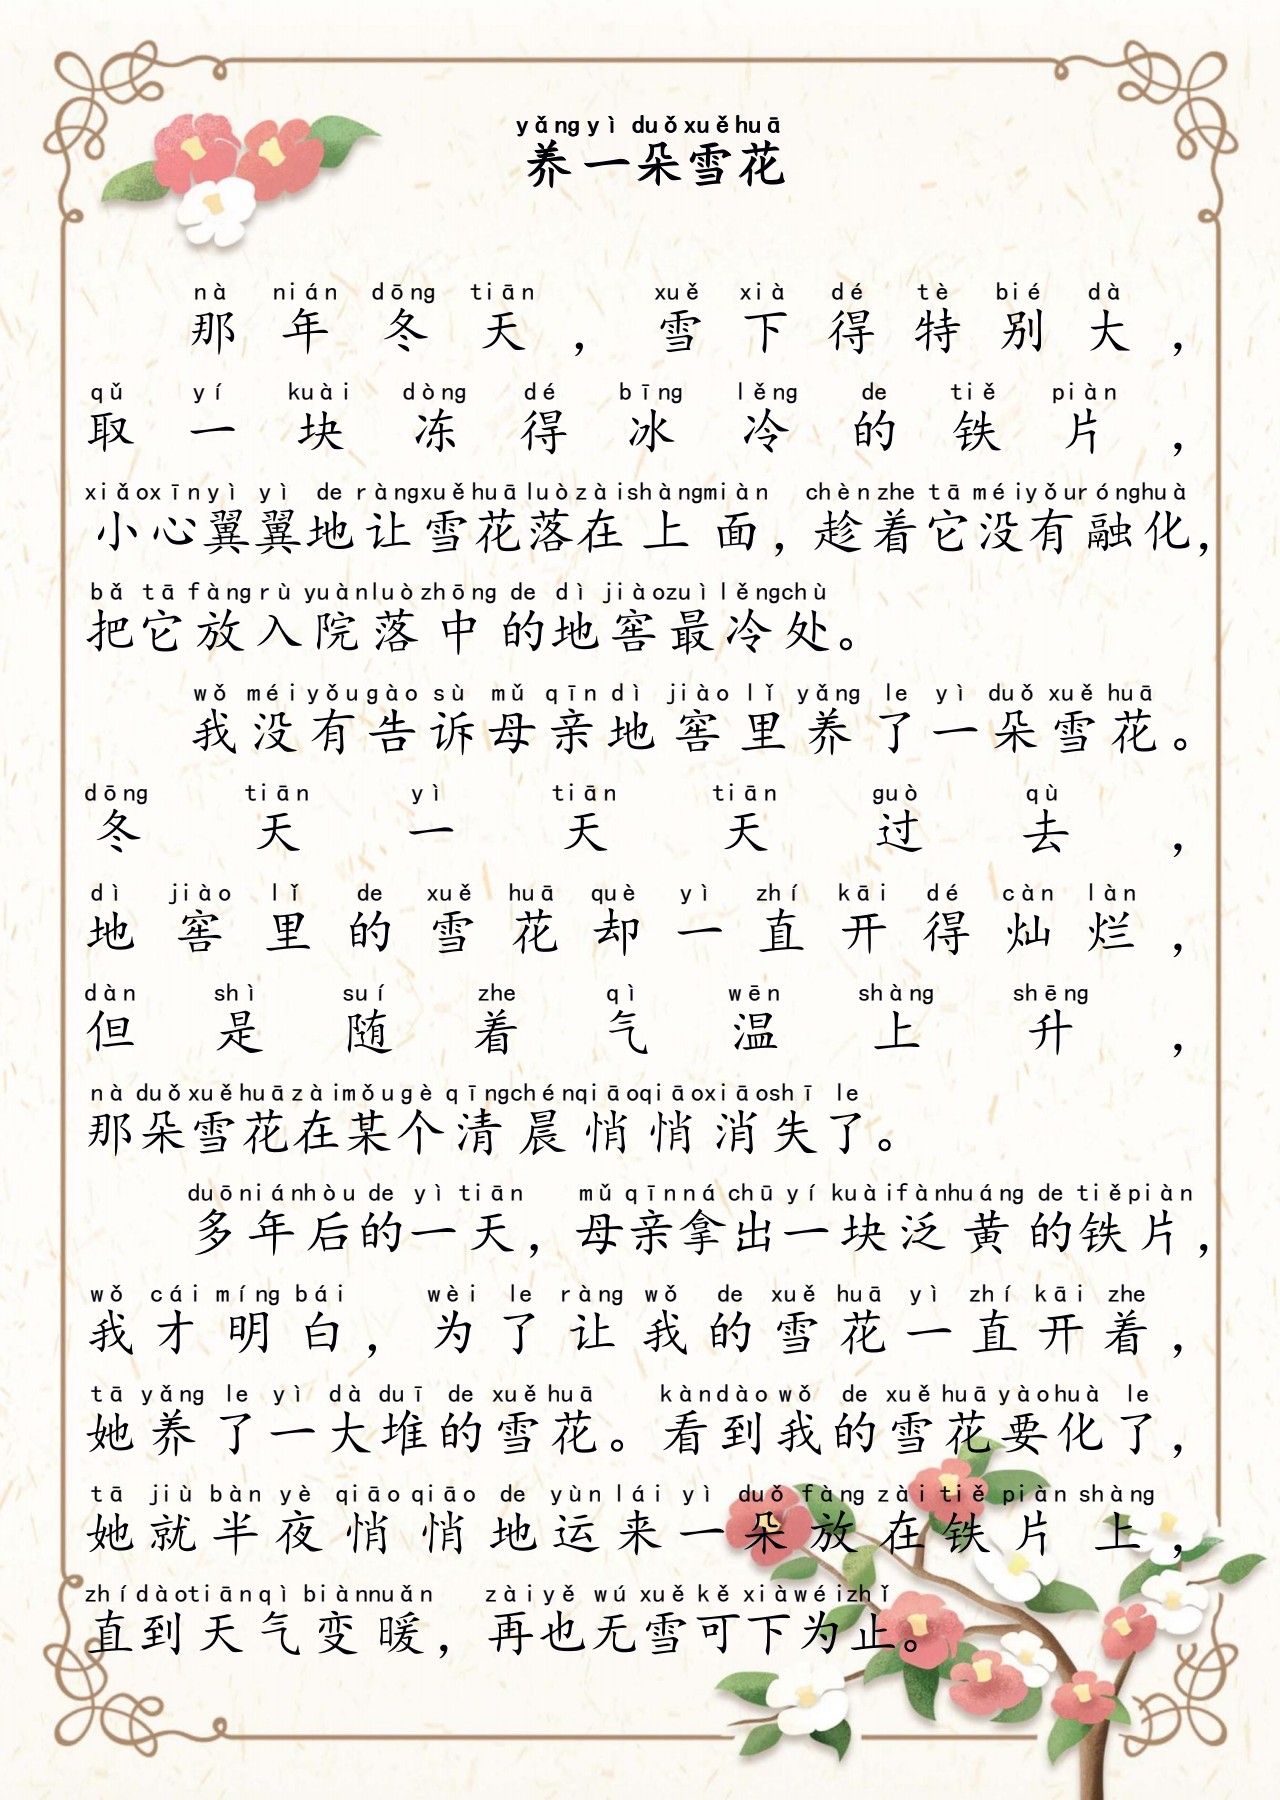 yǎng yì duǒ xuě huā
养一朵雪花
nà nián dōng tiān xuě xià dé tè bié dà
那年冬天，雪下得特别大，
qǔ yí kuài dòng dé bīng lěng de tiě piàn
取一块冻得冰冷的铁片，
xiǎo xīn yì yì de ràng xuě huā luò zài shàng miàn chèn zhe tā méi yǒu róng huà
小心翼翼地让雪花落在上面，趁着它没有融化，
bǎ tā fàng rù yuàn luò zhōng de dì jiào zuì lěng chù
把它放入院落中的地窖最冷处。
wǒ méi yǒu gào sù mǔ qīn dì jiào lǐ yǎng le yì duǒ xuě huā
我没有告诉母亲地窖里养了一朵雪花。
dōng tiān yì tiān tiān guò qù
冬天一天天过去，
dì jiào lǐ de xuě huā què yì zhí kāi dé càn làn
地窖里的雪花却一直开得灿烂，
dàn shì suí zhe qì wēn shàng shēng
但是随着气温上升，
nà duǒ xuě huā zài mǒu gè qīng chén qiāo qiāo xiāo shī le
那朵雪花在某个清晨悄悄消失了。
duō nián hòu de yì tiān mǔ qīn ná chū yí kuài fàn huáng de tiě piàn
多年后的一天，母亲拿出一块泛黄的铁片，
wǒ cái míng bái wèi le ràng wǒ de xuě huā yì zhí kāi zhe
我才明白，为了让我的雪花一直开着，
tā yǎng le yì dà duī de xuě huā kàn dào wǒ de xuě huā yào huà le
她养了一大堆的雪花。看到我的雪花要化了，
tā jiù bàn yè qiāo qiāo de yùn lái yì duǒ fàng zài tiě piàn shàng
她就半夜悄悄地运来一朵放在铁片上，
zhí dào tiān qì biàn nuǎn zài yě wú xuě kě xià wéi zhǐ
直到天气变暖，再也无雪可下为止。